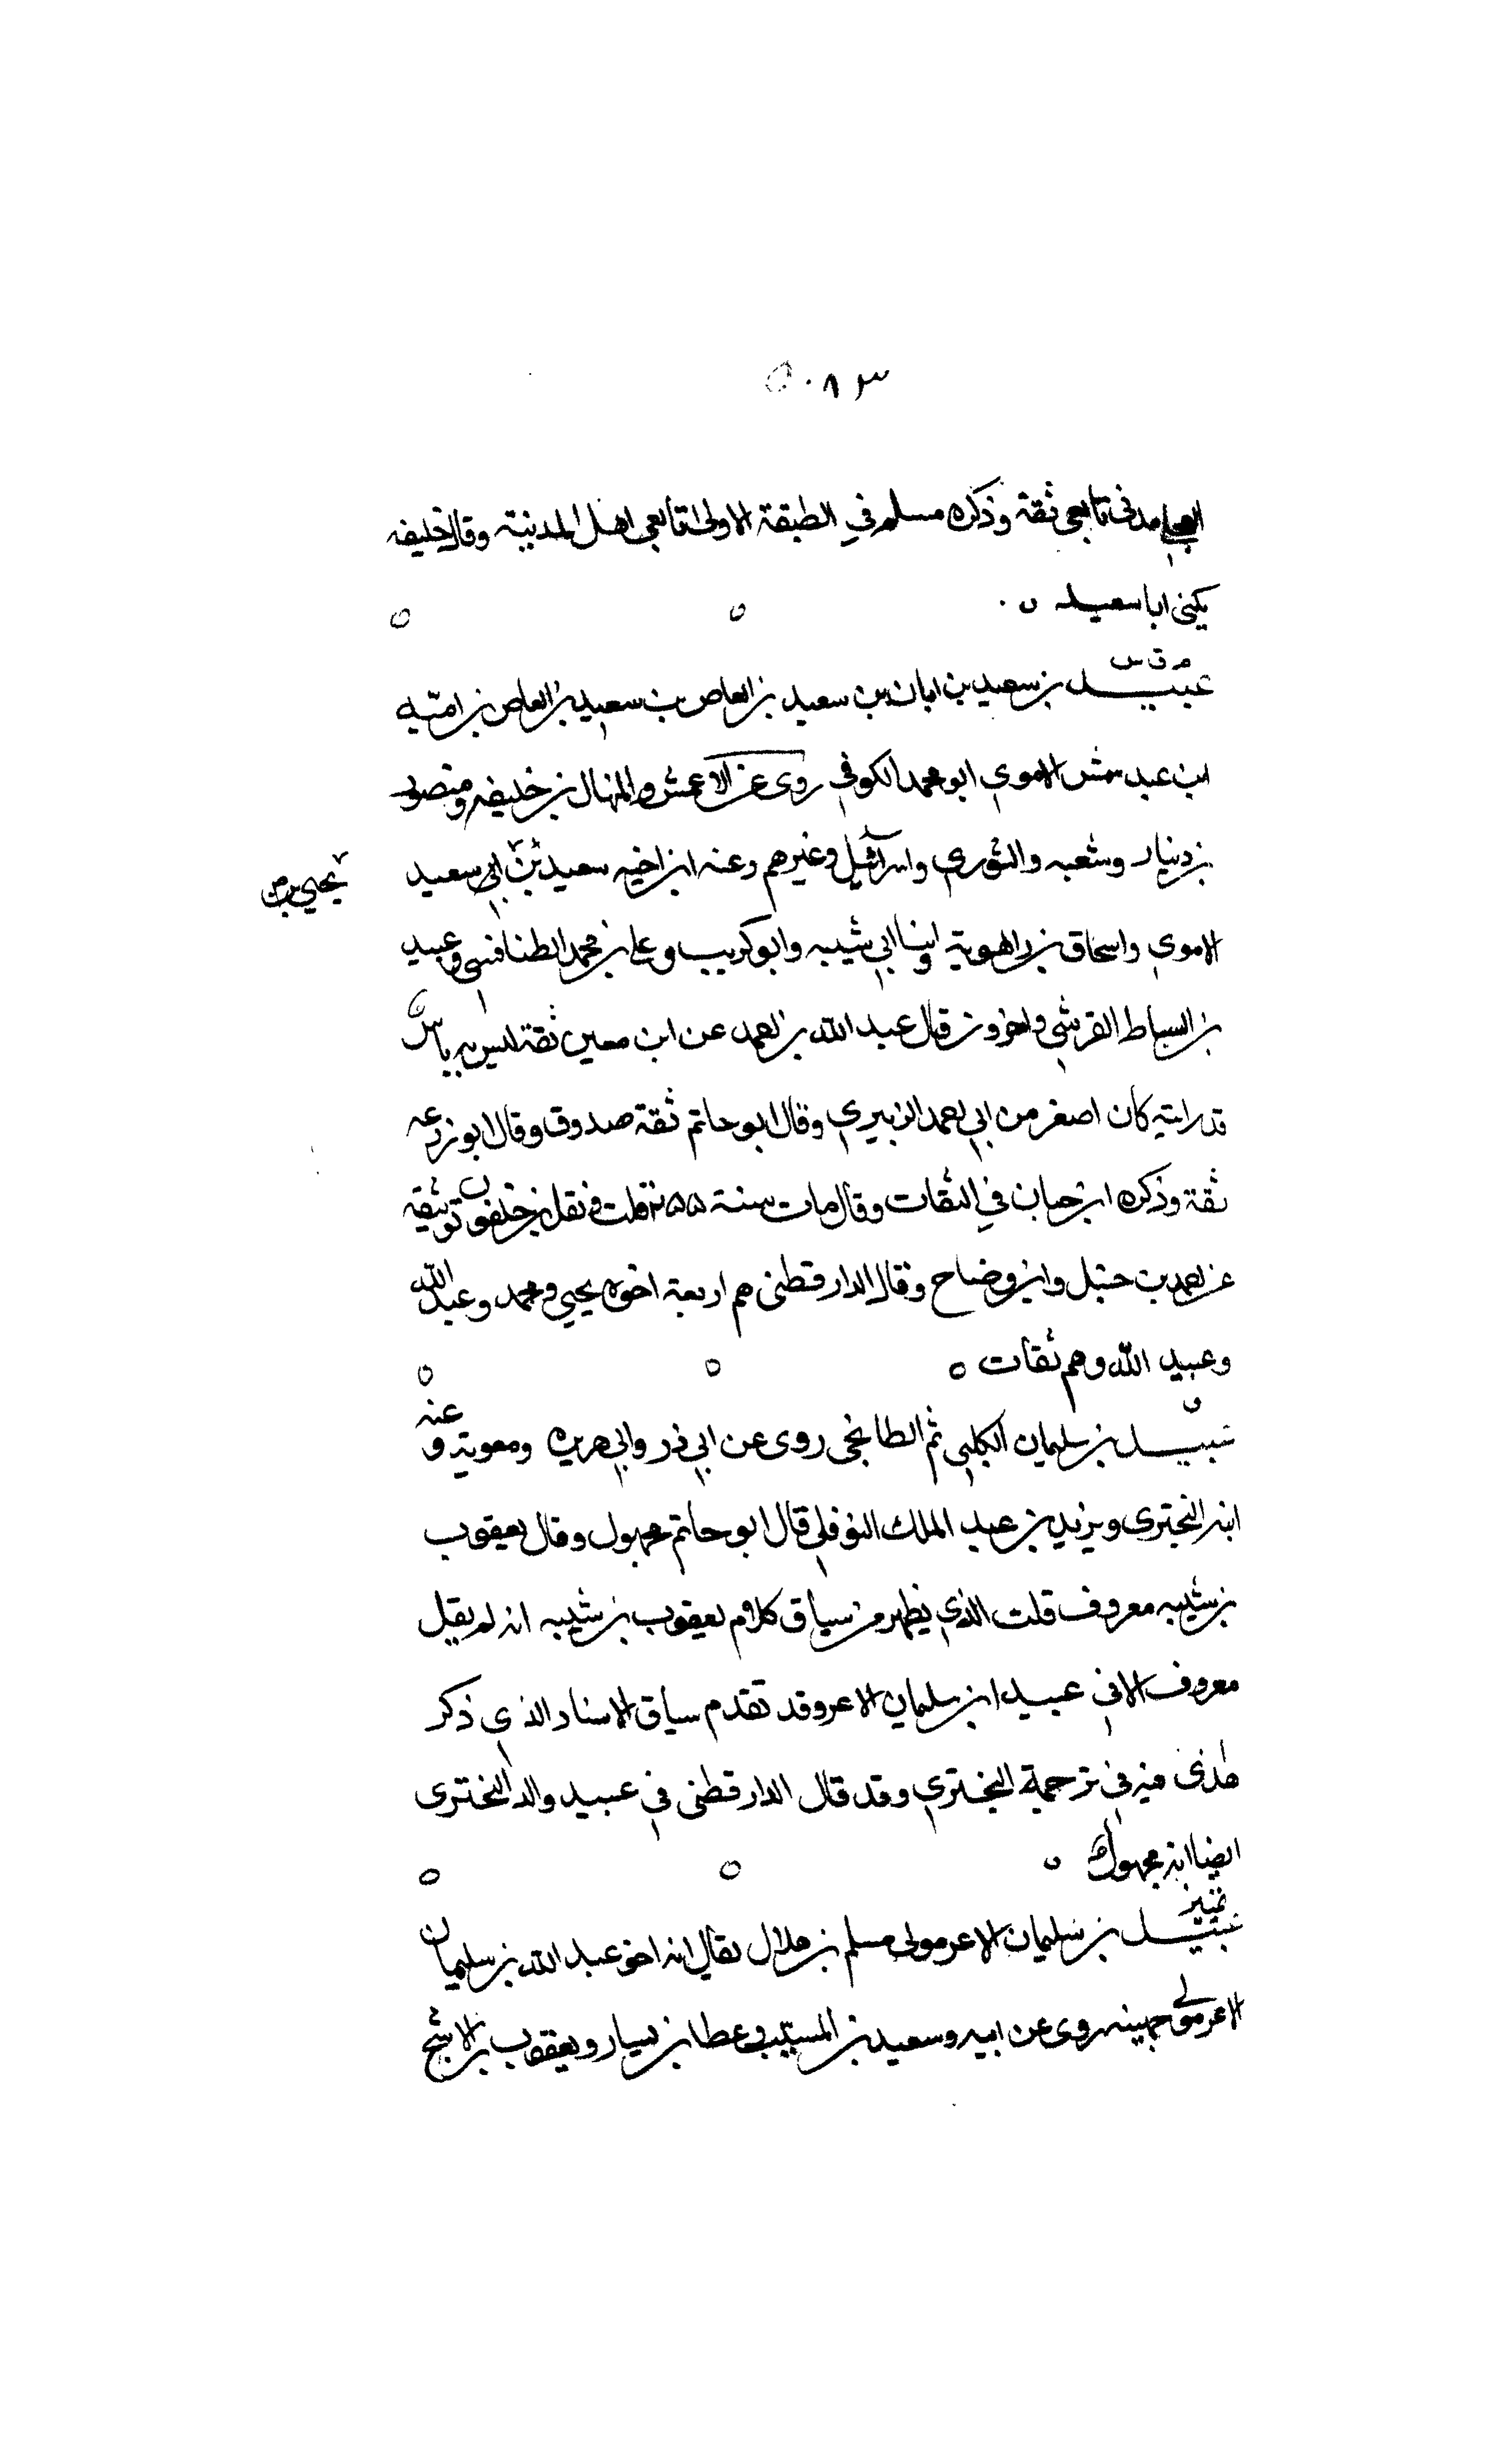 ٥٠٨٣
العجلي مدني تابعي ثقة وذكره مسلم في الطبقة الاولى تابعي اهل المدينة وقال خليفه
يكنى ابا سعيد
م ق س
عبيد بن سعيد بن ابان بن سعيد بن العاص بن سعيد بن العاص بن اميّه
ابن عبد شمس الاموي ابو محمد الكوفي روى عن الاعمش والمنهال بن خليفه ومنصور
بن دينار وشعبه والثوري واسرآئيل وغيرهم وعنه ابن اخيه سعيد بن ابي سعيد
يحيى بن ص
الاموي واسحاق بن راهويه وابنا ابي شيبه وابو كريب وعلي بن محمد الطنافسي وعبيد
بن اسباط القرشي واخرون قال عبد الله بن احمد عن ابن معين ثقة ليس به باس
قد رايته كان اصغر من ابي احمد الزبيري وقال ابو حاتم ثقة صدوق وقال ابو زرعه
ثقة وذكره ابن حبان في الثقات وقال مات سنة ٢٥٥ قلت ونقل بن خلفون توثيقه
عن احمد بن حنبل وابن وضاح وقال الدارقطني هم اربعة اخوه يحيى ومحمد وعبد الله
وعبيد الله وهم ثقات
ق
عبيد بن سليمان الكلبي ثم الطابخي روى عن ابي ذر وابي هريره ومعوية وعنه
ابنه البختري ويزيد بن عبد الملك النوفلي قال ابو حاتم مجهول وقال يعقوب
بن شيبه معروف قلت الذي يظهر من سياق كلام يعقوب بن شيبه انه لم يقل
معروف الا في عبيد ابن سليمان الاعر وقد تقدم سياق الاسناد الذي ذكر
هذا فيه في ترجمة البختري وقد قال الدارقطني في عبيد والد البختري
ايضا انه مجهول
تمييز
عبيد بن سليمان الاعر مولى مسلم بن هلال يقال انه اخو عبد الله بن سليمان
الاعر مولى جهينه روى عن ابيه وسعيد بن المسيب وعطا بن يسار ويعقوب بن الاشج